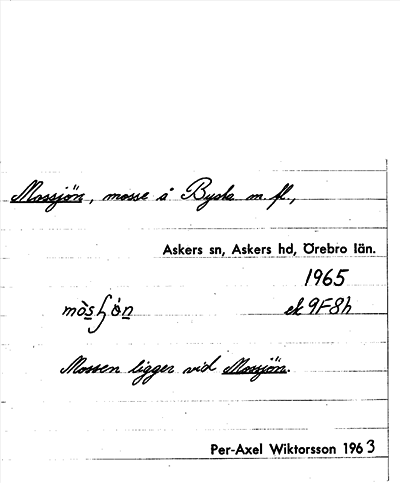 Mossjön, mosse å Bysta m. fl.,
Askers sn, Askers hd, Örebro län.
1965
mòsɧòn ek 9F8h
Mossen ligger vid Mossjön.
Per-Axel Wiktorsson 1963